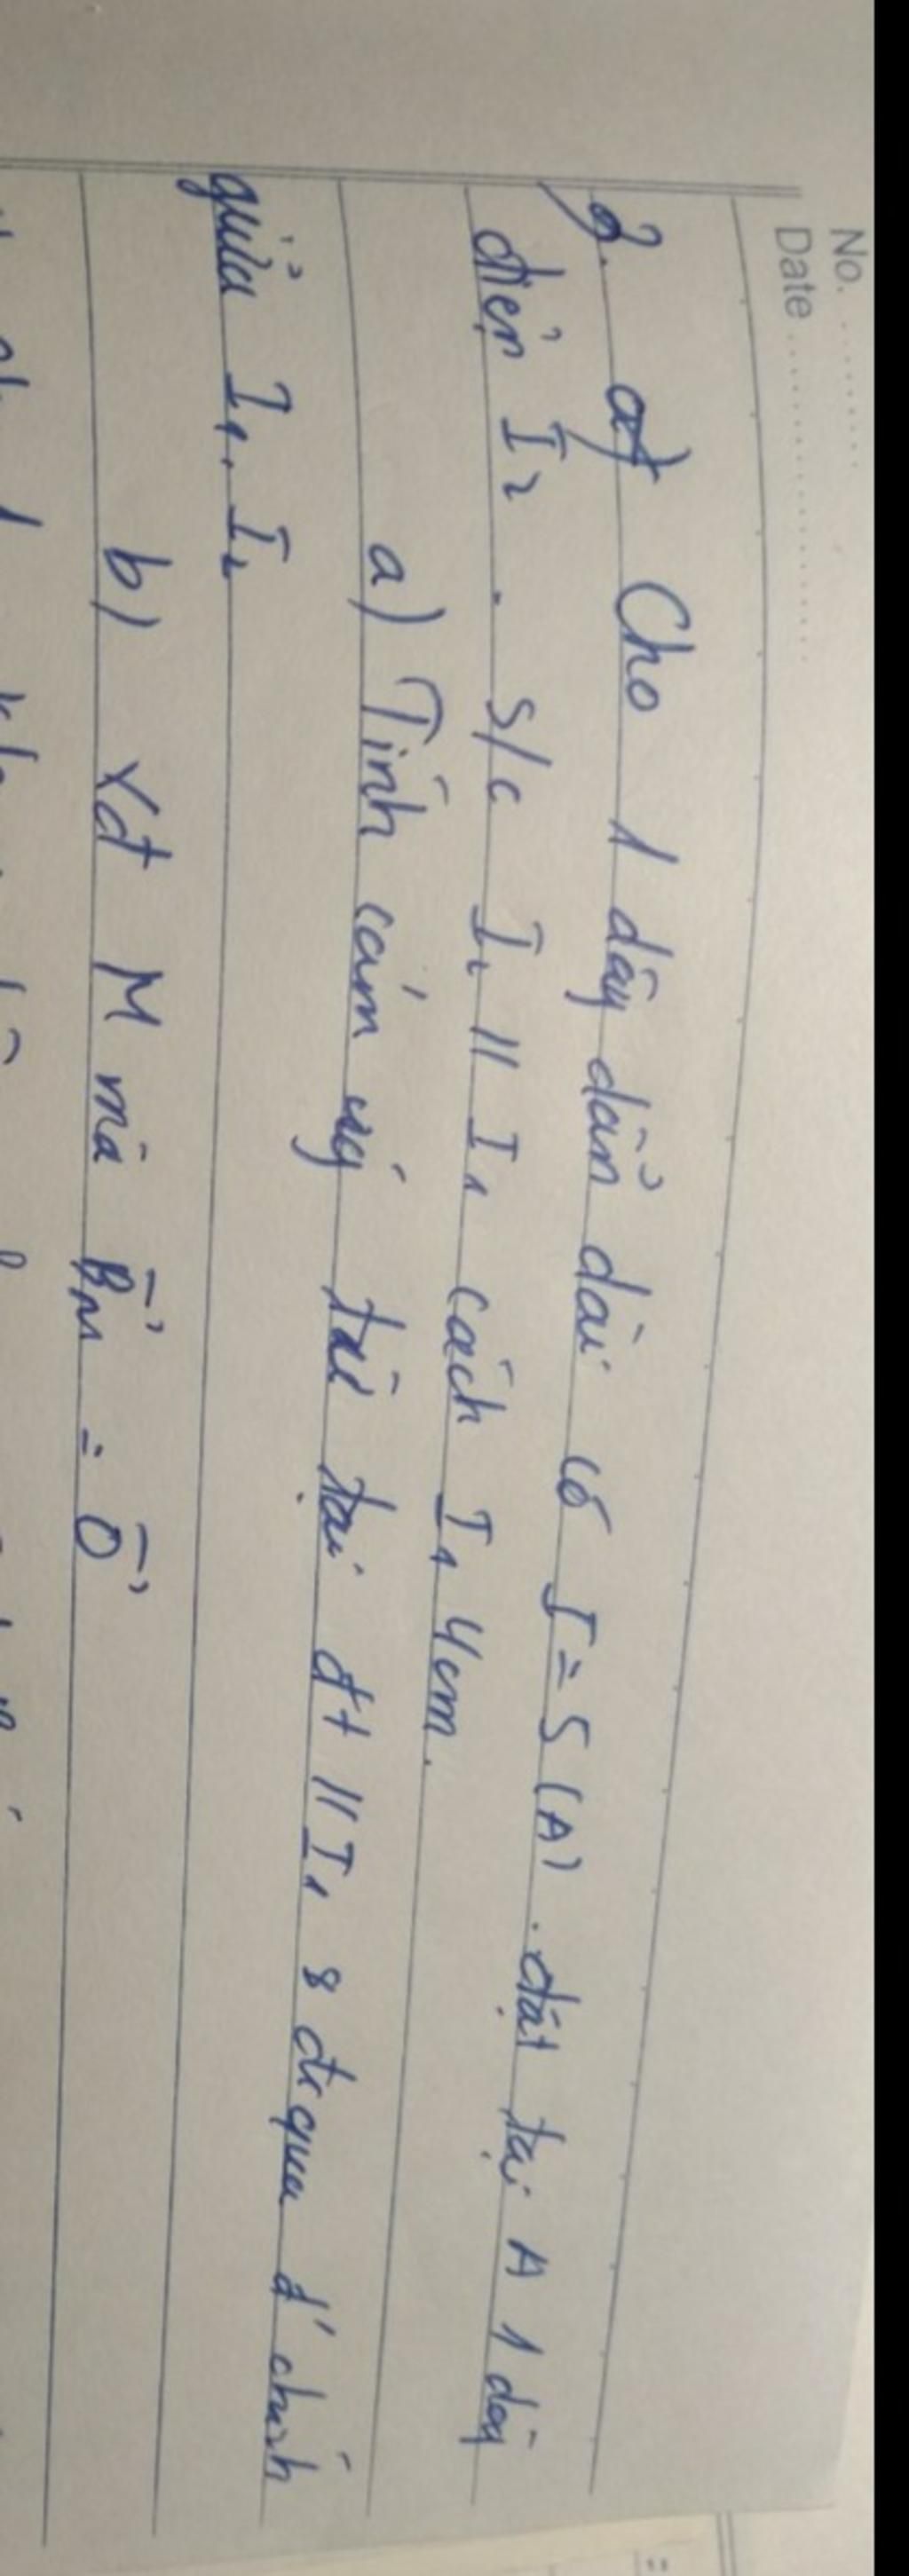 No. ........
Date ....................
3. a) Cho 1 dây dẫn dài có I = 5 (A). đặt tại A 1 dây
điện I₂. S/c I₂ // I₁ cách I₁ 4cm.
a) Tính cảm ứg từ tại đt // I₁ & đi qua đ' chính
giữa I₁, I₂
b) Xđ M mà B⃗M = 0⃗